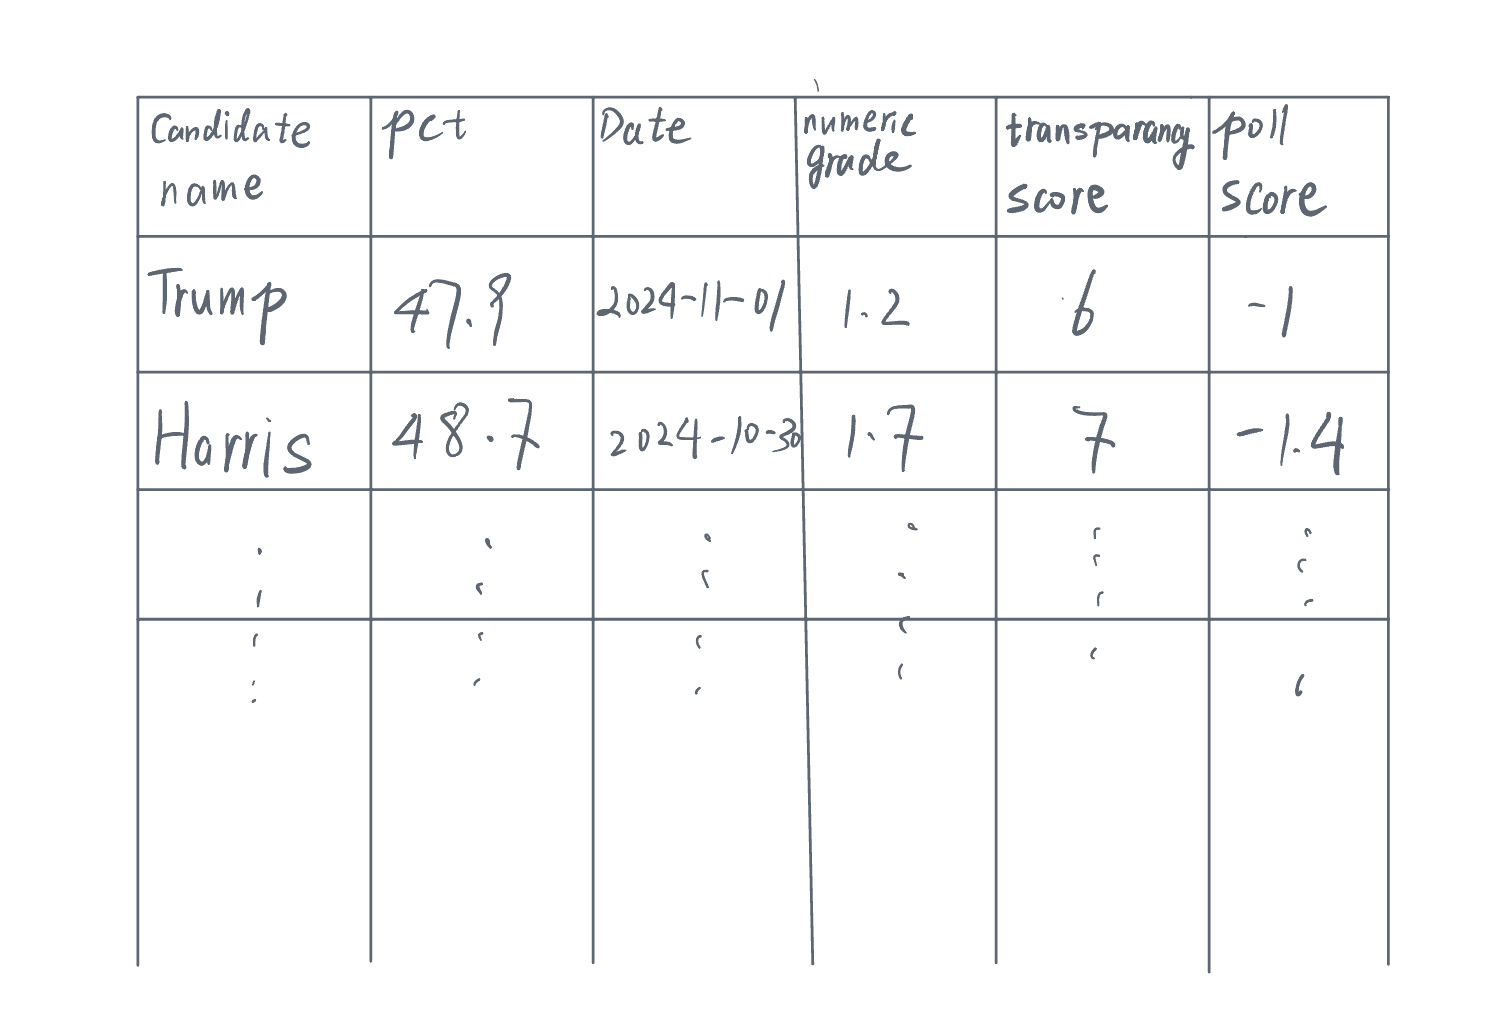 Candidate name
pct
Date
numeric grade
transparancy score
poll score
Trump 47.9 2024-11-01 1.2 6 -1
Harris 48.7 2024-10-30 1.7 7 -1.4